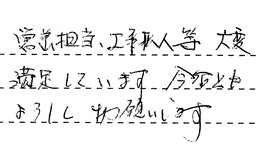 営業担当、工事人等 大変
満足しています 今后とも
よろしくお願いします